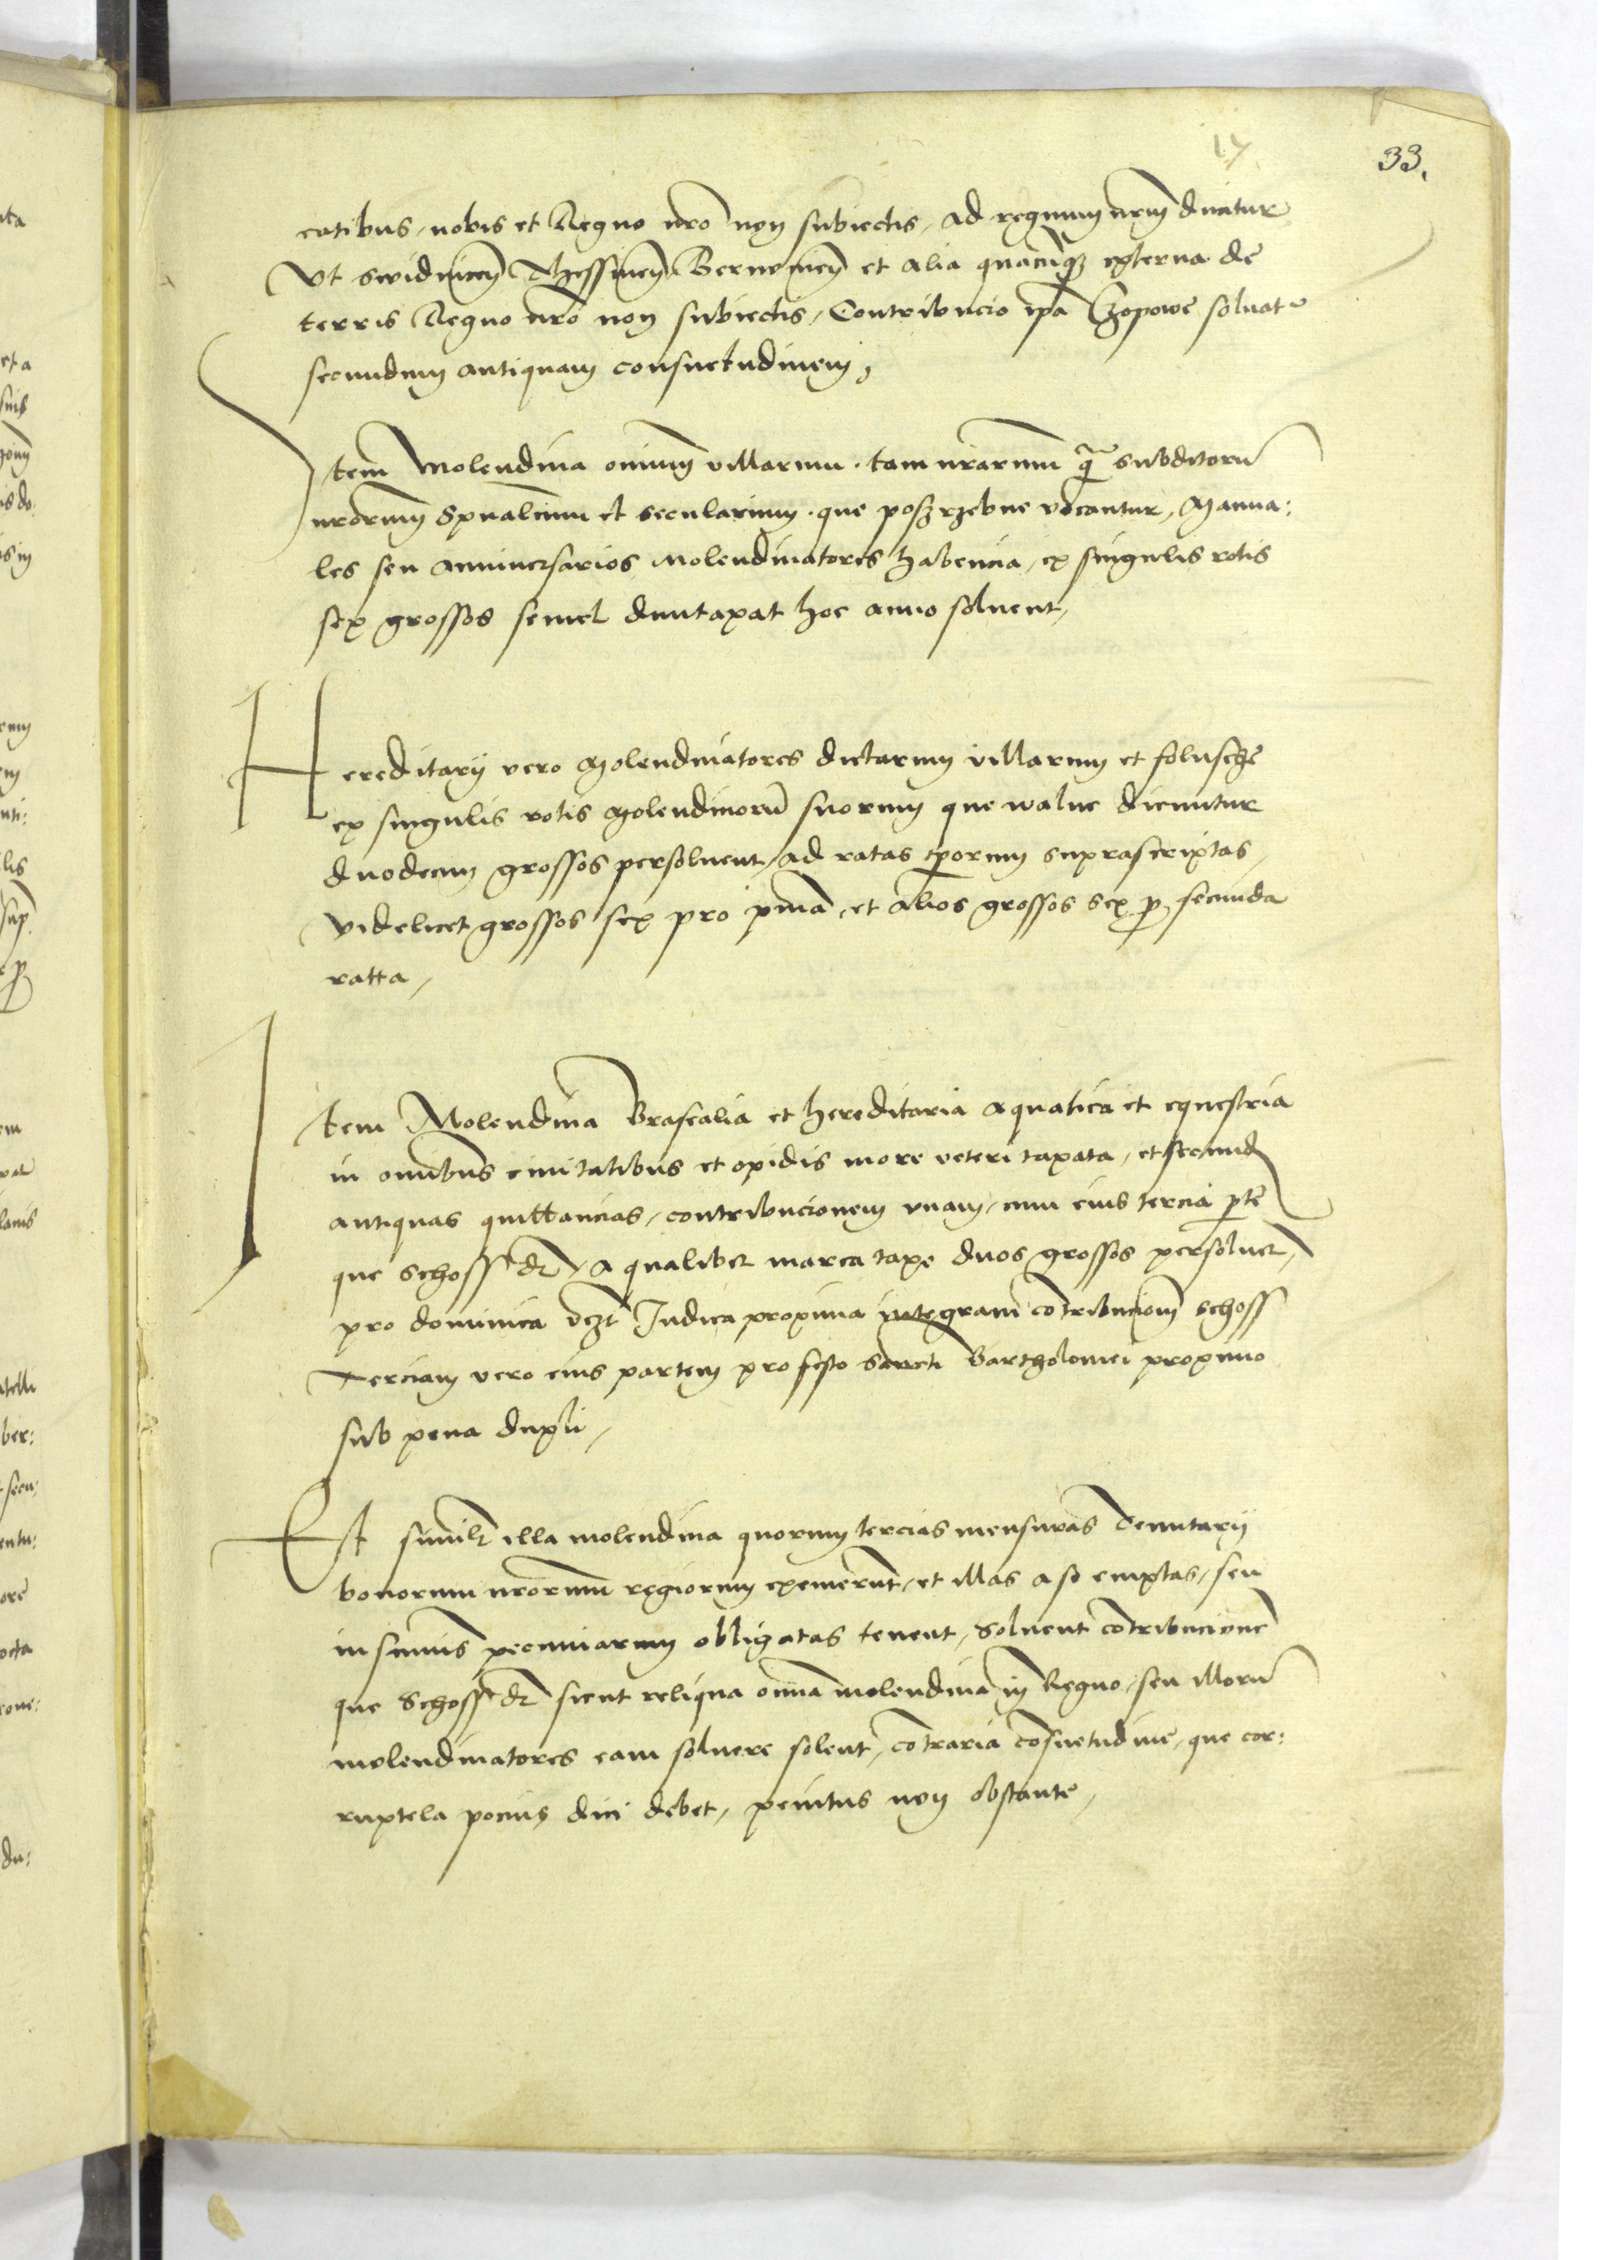 17
33.
catibus, nobis et Regno nro non subiectis, ad regnum nrum ducatur
Vt swidnicen Thessinen Bernouien et alia quacunq externa de
terris Regno nro non subiectis, Contribucio ipa Czopowe soluat
secundum antiquam consuetudinem,
Item Molendina omnium villarum. tam nrarum q subditoru
nrorum spualium et secularium. que poszrzebne vocantur, Manua:
les seu anniuersarios Molendinatores habencia, ex singulis rotis
sex grossos semel duntaxat hoc anno soluent,
Hereditarij vero Molendinatores dictarum villarum et
ex singulis rotis Molendinoru suorum que walne dicuntur
duodecim grossos persoluent, ad ratas tporum suprascriptas,
videlicet grossos sex pro pma, et alios grossos sex p secunda
ratta,
Item Molendina Brasealia et hereditaria aquatica et equestria
in omnibus ciuitatibus et opidis more veteri taxata, et secund
antiquas quittancias, contribucionem vnam, cum eius tercia pte
que schoss dr, A qualibet marca taxe duos grossos persoluet,
pro dominica vczt Iudica proxima integram contribucionem schoss
Terciam vero eius partem pro festo Sancti Bartholomei proximo
sub pena dupli,
Et similr illa molendina quorum tercias mensuras Tenutarij
bonorum nrorum regiorum exemerunt, et illas a se emptas, seu
in summis pecuniarum obligatas tenent, Soluent contribucione
que Schoss dr sicut reliqua omnia molendina in Regno, seu illoru
molendinatores eam soluere solent, contraria consuetudine, que cor:
ruptela pocius dici debet, penitus non obstante,